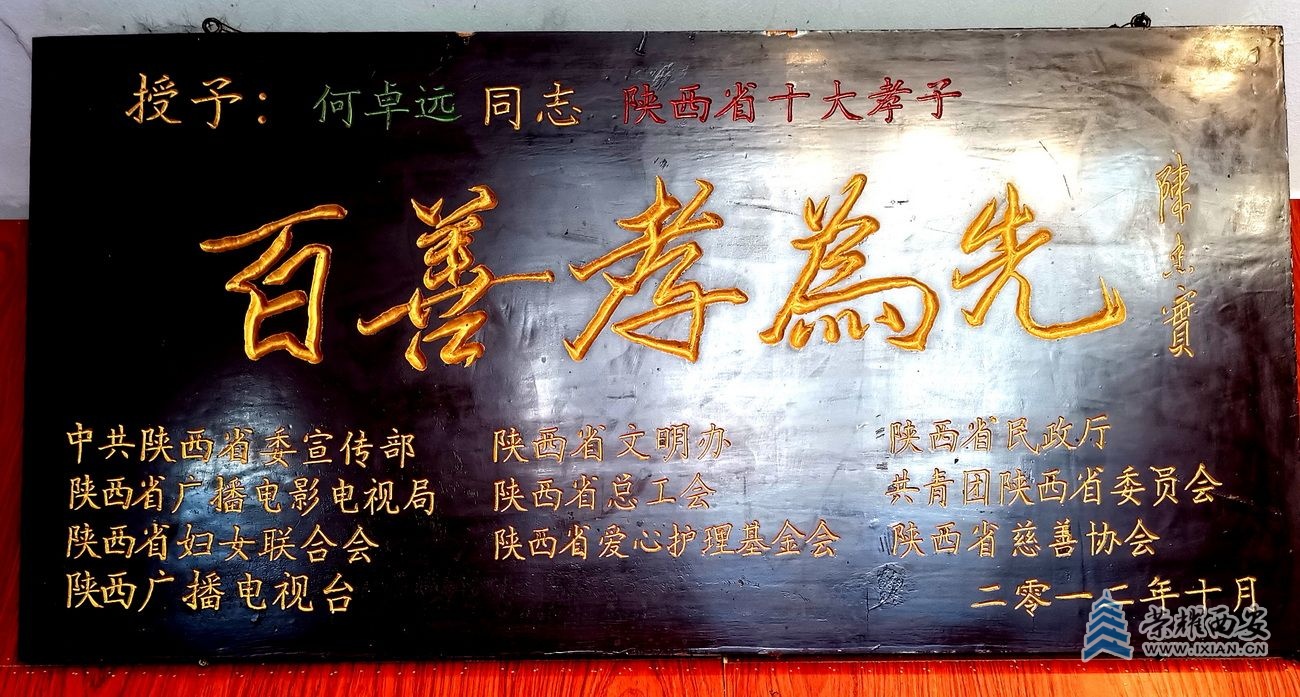 授予：何卓远 同志 陕西省十大孝子
百善孝為先
陳忠實
中共陕西省委宣传部 陕西省文明办 陕西省民政厅
陕西省广播电影电视局 陕西省总工会 共青团陕西省委员会
陕西省妇女联合会 陕西省爱心护理基金会 陕西省慈善协会
陕西广播电视台
二零一二年十月
荣耀西安
WWW.IXIAN.CN